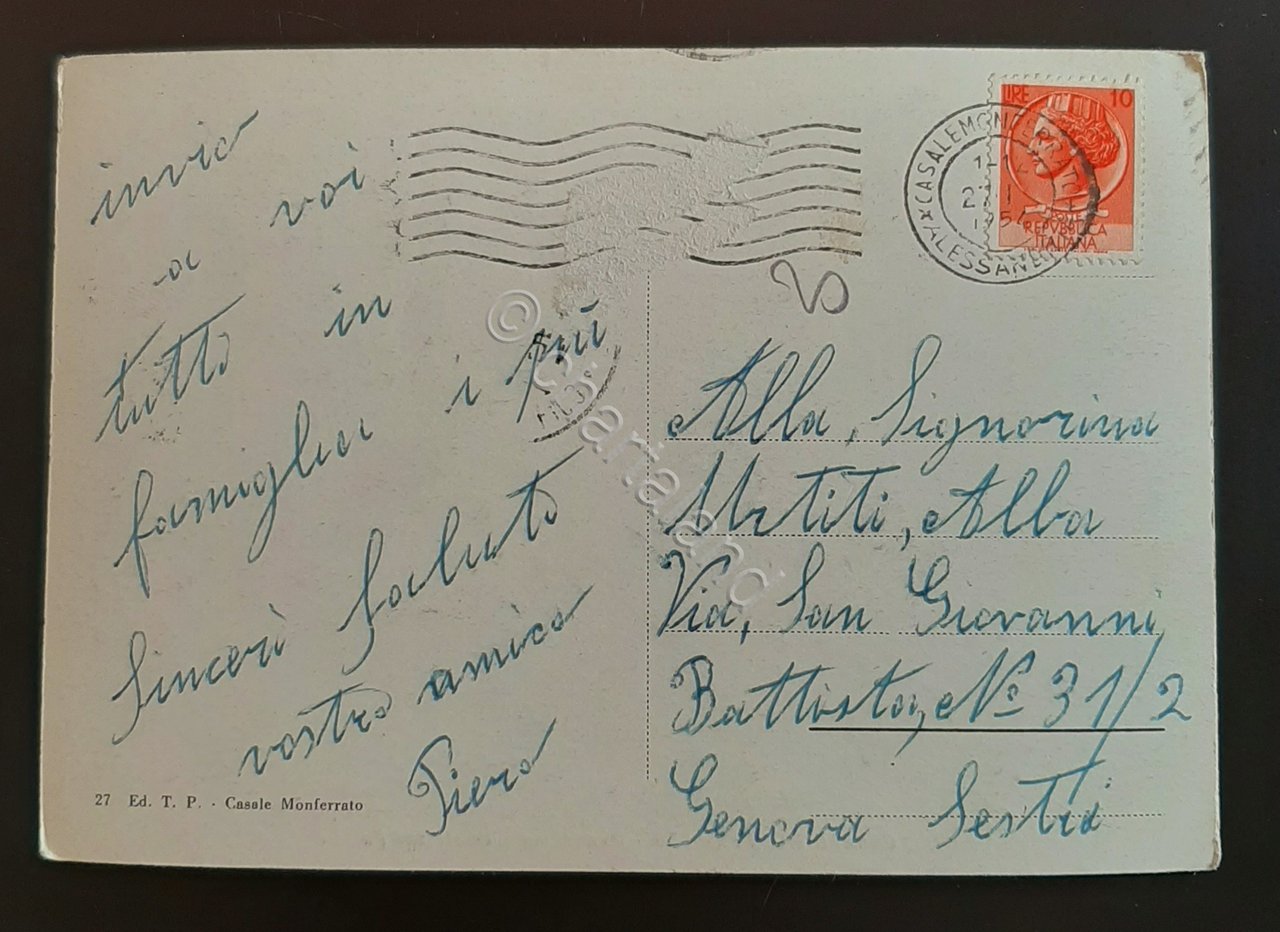 invio
a voi
tutto in
famiglia i più
Sinceri saluto
vostro amico
Piero
27 Ed. T. P. - Casale Monferrato
LIRE 10
POSTE
REPVBBLICA
ITALIANA
CASALE MONFERRATO
ALESSAN
Alla, Signorina
Alba
Via, San Giovanni
Battista, No 31/2
Genova Sestri
© Cartaland